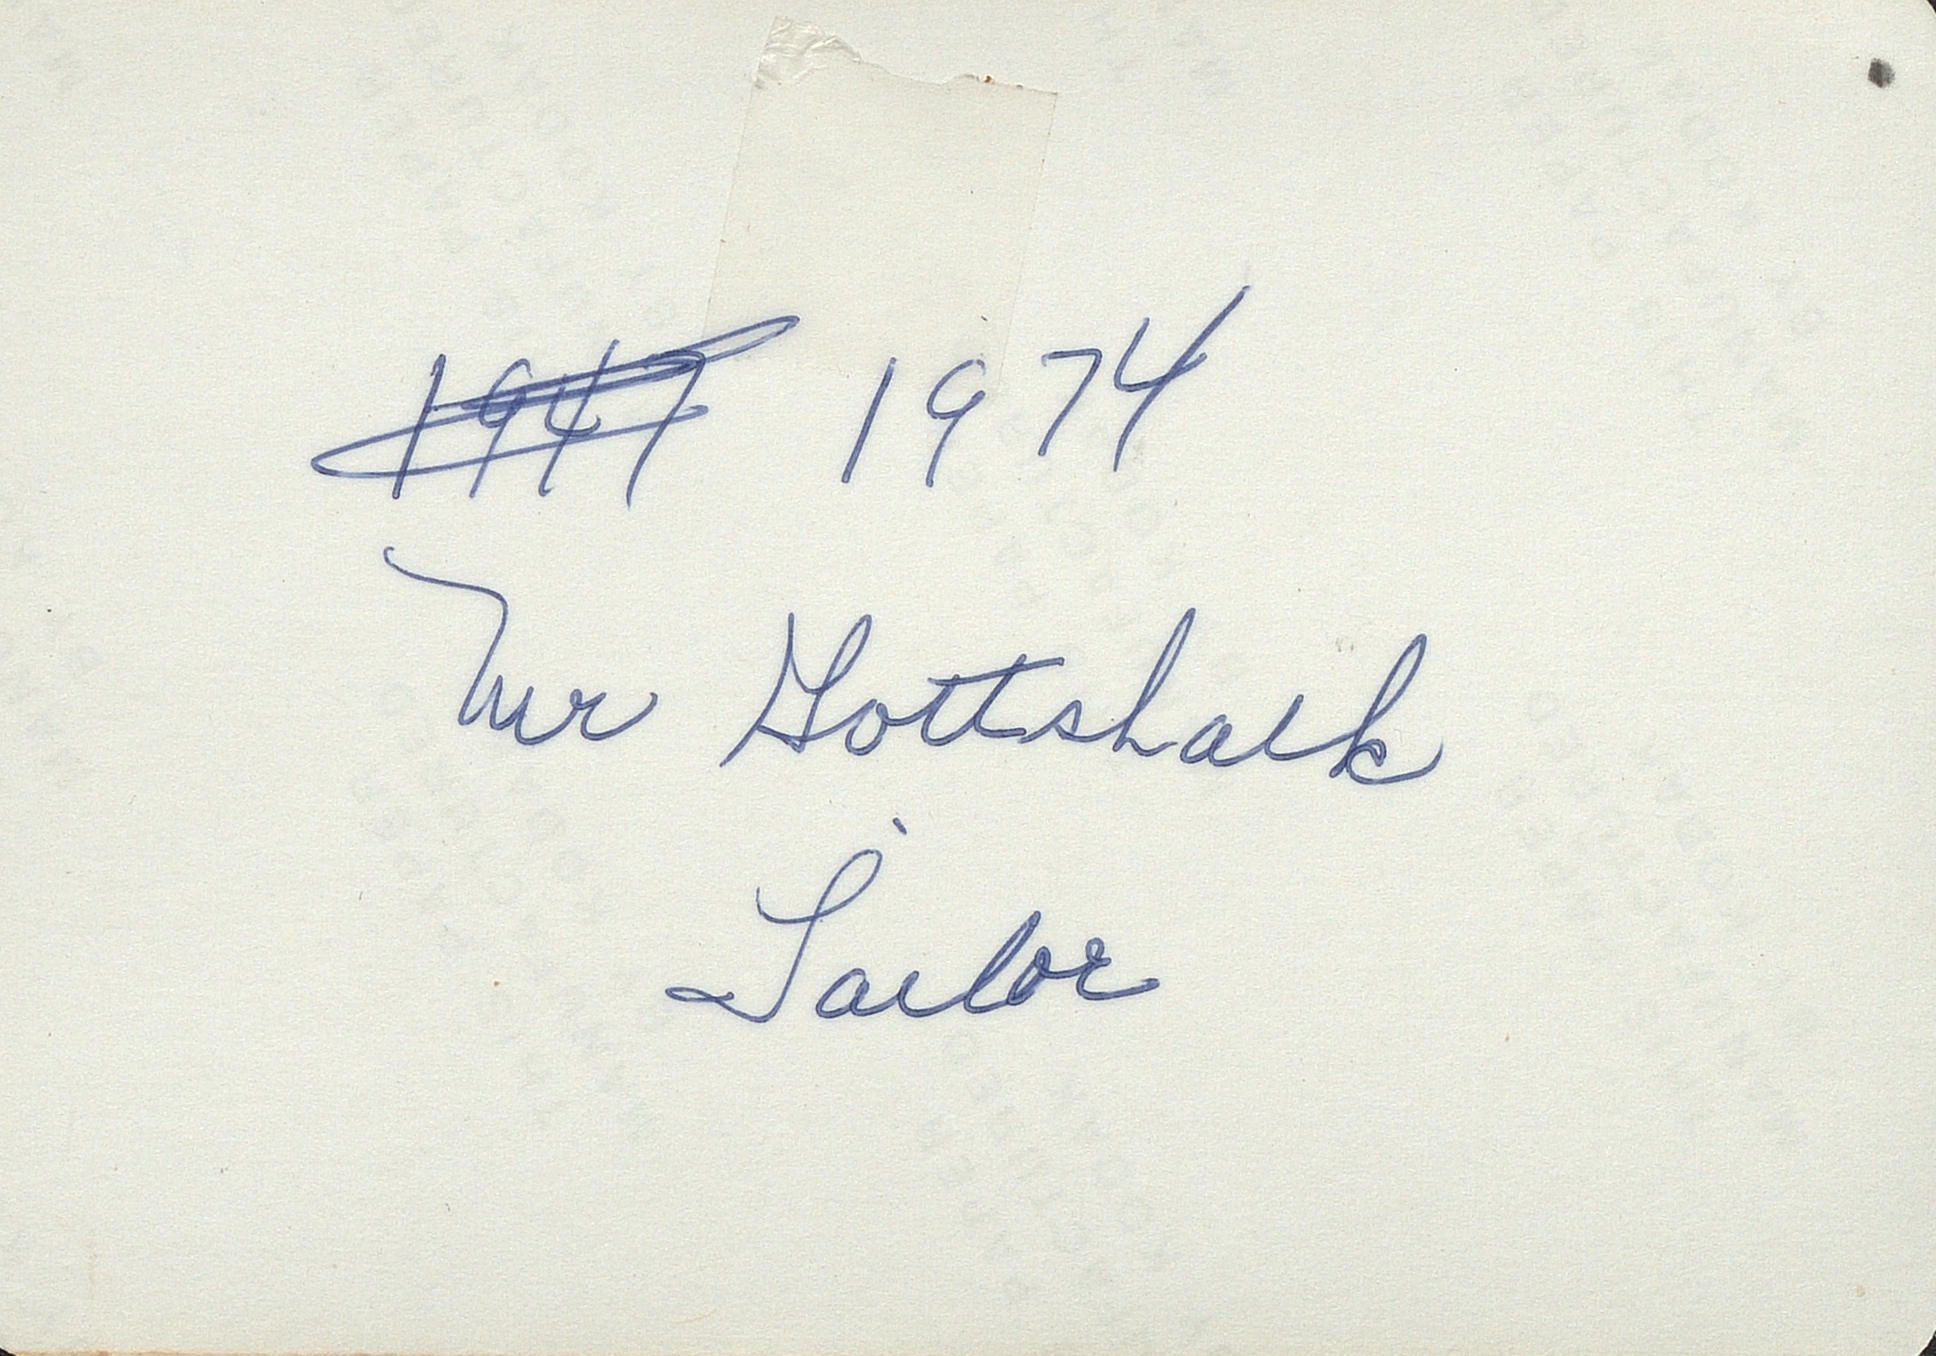 1947 1974
Mr Gottshalk
Tailor